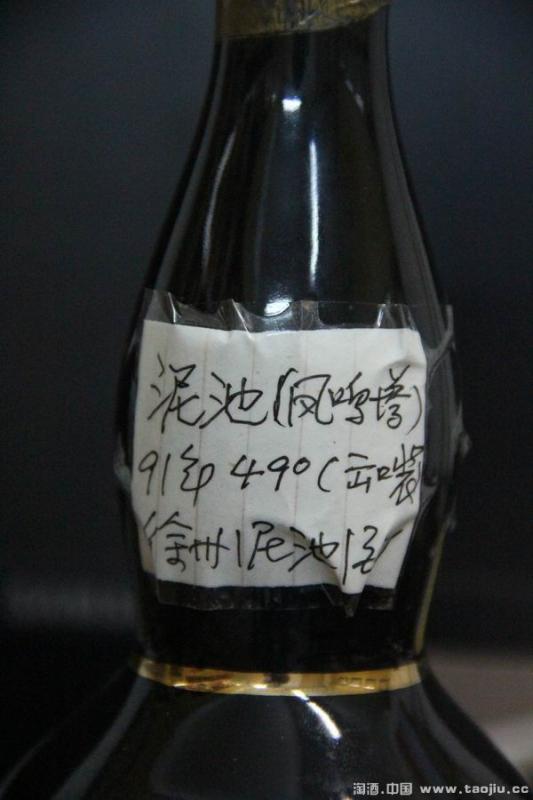 泥池(凤鸣塔)
91年 49°(云口装
徐州泥池酒厂
淘酒.中国 www.taojiu.cc